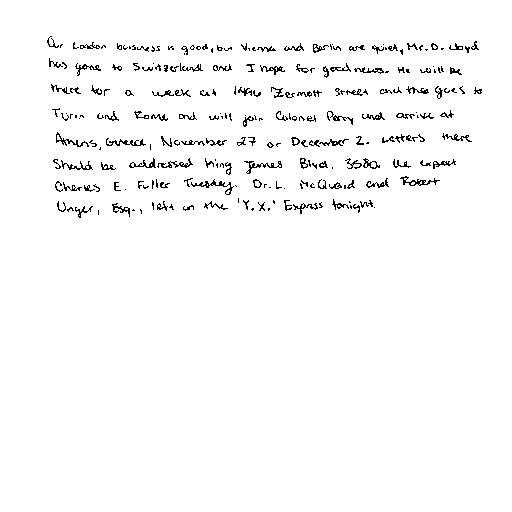 Our London business is good, but Vienna and Berlin are quiet, Mr. D. Lloyd
has gone to Switzerland and I hope for good news. He will be
there for a week at 1496 Zermott Street and then goes to
Turin and Rome and will join Colonel Parry and arrive at
Athens, Greece, November 27 or December 2. Letters there
should be addressed King James Blvd. 3580. We expect
Charles E. Fuller Tuesday. Dr. L. McQuaid and Robert
Unger, Esq., left on the 'Y.X.' Express tonight.